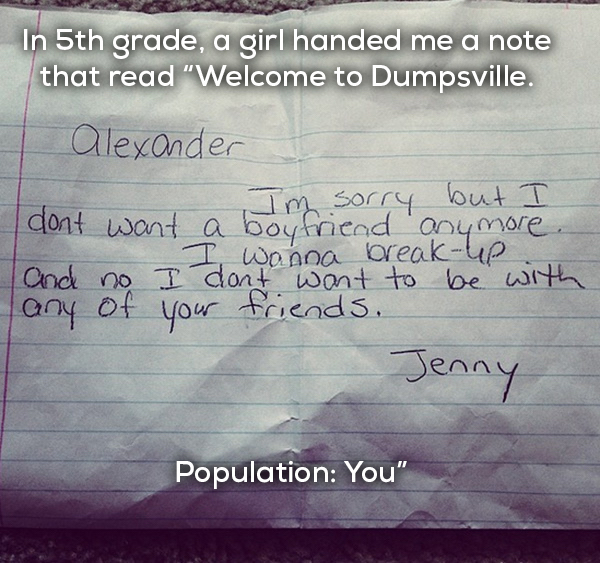 In 5th grade, a girl handed me a note
that read “Welcome to Dumpsville.
Alexander
Im sorry but I
dont want a boyfriend anymore.
I wanna break-up.
And no I dont want to be with
any of your friends.
Jenny
Population: You”